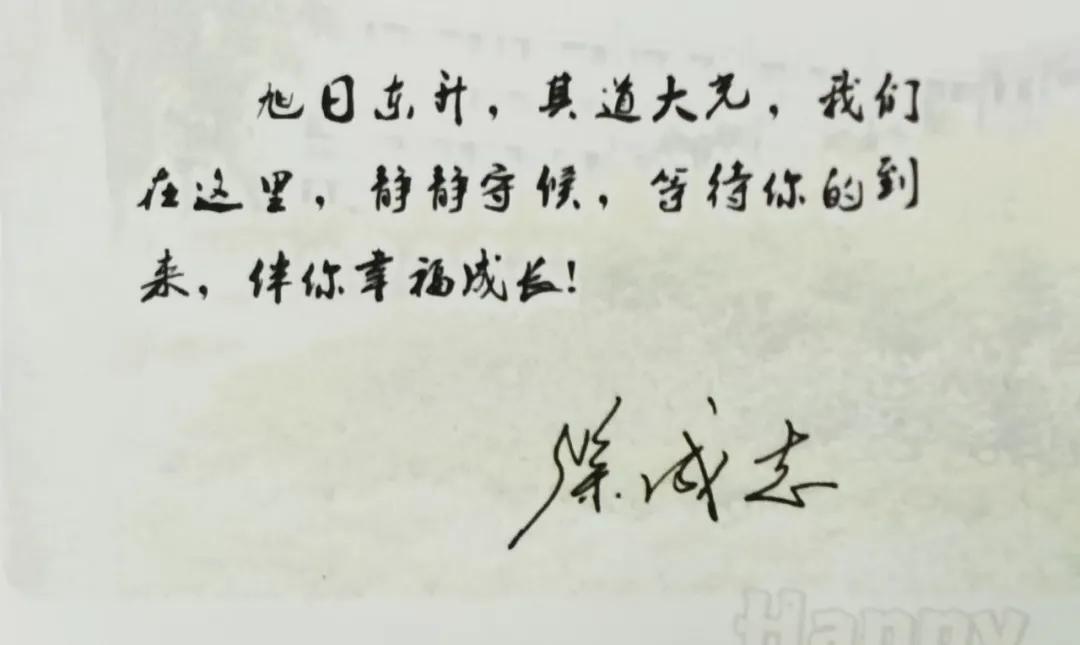 旭日东升，其道大光，我们
在这里，静静守候，等待你的到
来，伴你幸福成长！
徐成志
Happy